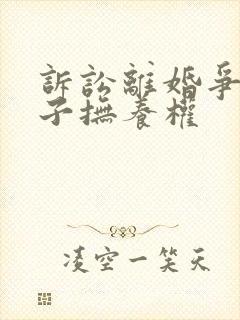 訴訟離婚爭
子撫養權
凌空一笑天